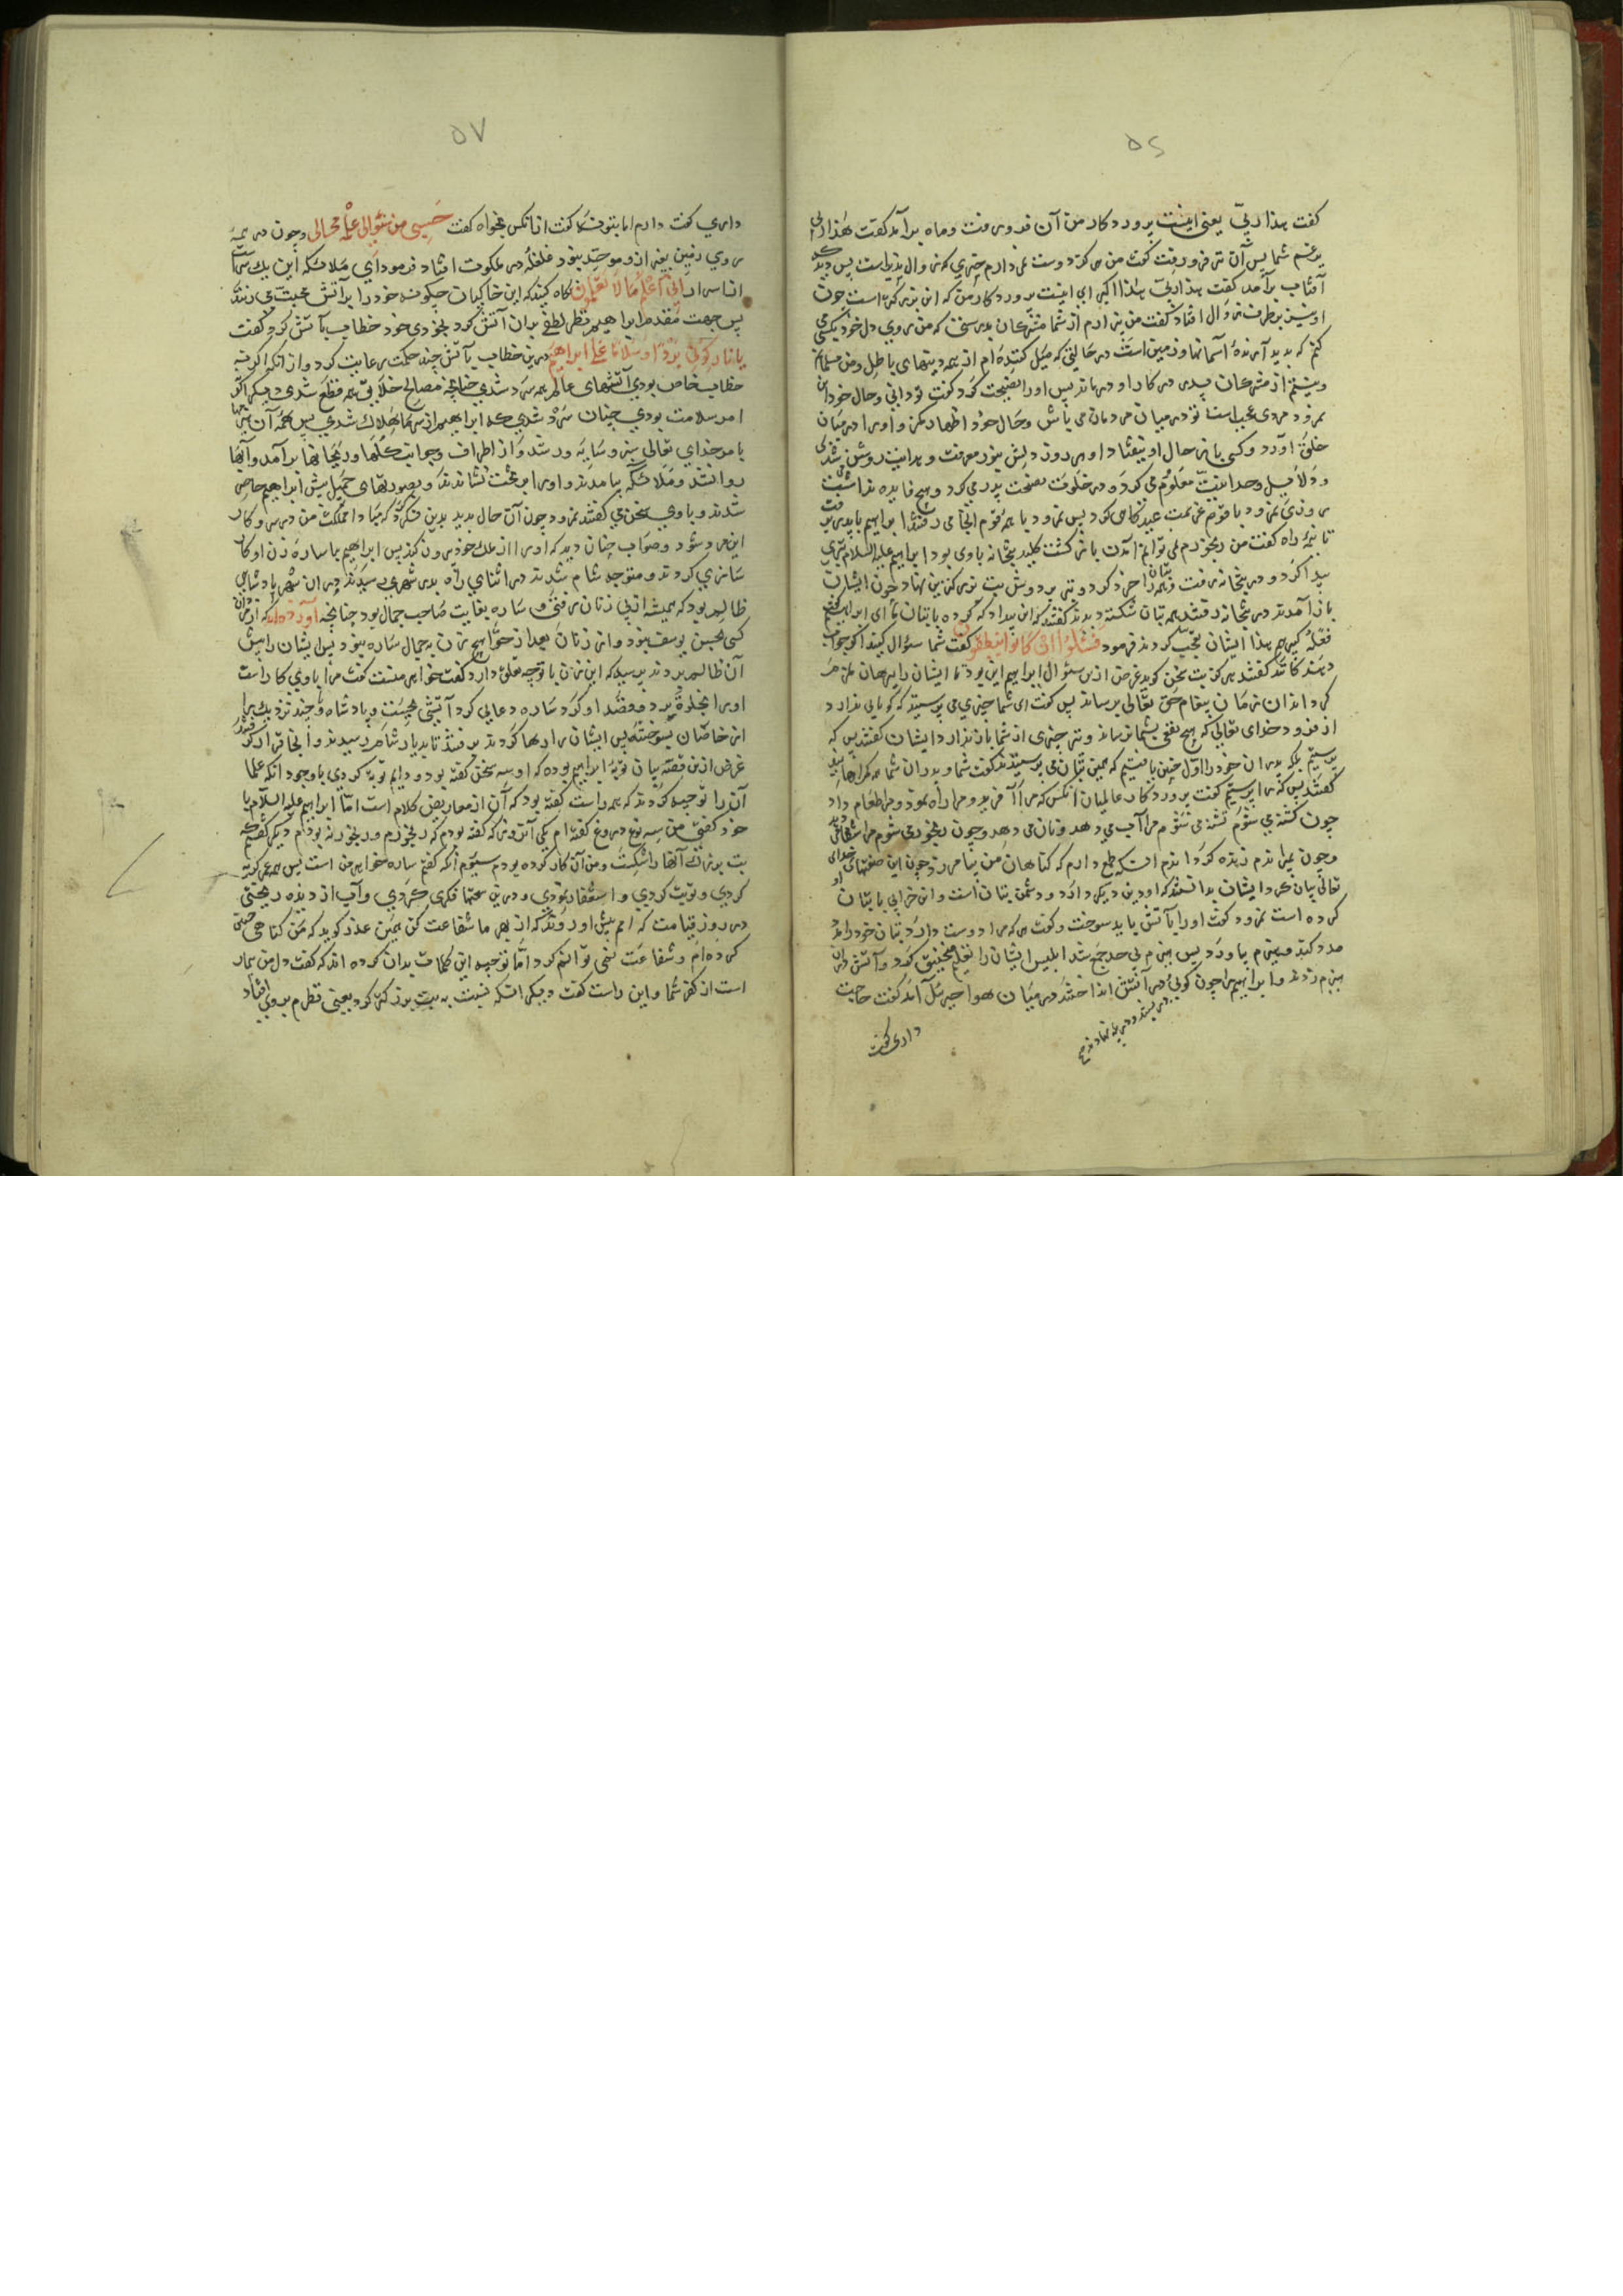 ۵۶
کفت هذا ربّی یعنی اینست پروردکار من آن فرو رفت و ماه برآمد کفت هذا ربی
آفتاب برآمد کفت هذا ربّی هذا اکبر ای اینست پروردکار من که این بزرکتر است چون
او نیز بطرف زوال افتاد کفت من بیزارم از شما مشرکان بدرستی که من روی دل خود یکسو می
کنم که پدید آرندهٔ آسمانها و زمین است در حالتی که میل کننده‌ام از همه دینهای باطل و من مسلمانم
و نیستم از مشرکان پدر در کار او درماند پس او را نصیحت کرد کفت تو دانی و حال خود
نمرود مردی عجب است تو در میان مردمان می باش و حال خود اظهار مکن و او را در میان
و دلایل وحدانیت معلوم می کرد و در خلوت نصیحت پدر می کرد و هیچ فایده نداشت
تا نیمه راه کفت من رنجورم نمی توانم آمدن باز کشت کلید بتخانه با وی بود ابراهیم علیه السلام تبری
پیدا کرد و در بتخانه رفت و همه را خرد کرد و تبر بر دوش بت بزرکترین نهاد چون ایشان
باز آمدند در بتخانه رفتند همه بتان شکسته دیدند کفتند که این بیداد که کرده با بتان ما ای ابراهیم کفت
فعله کبیرهم هذا ایشان تعجب کردند فرمود فسئلوا ان کانوا ینطقون کفت شما سؤال کنید اکر جواب
دهند کفتند هرکز بت سخن کوید غرض ازین سؤال ابراهیم این بود تا ایشان را برهان ملزم
کرداند آن زمان پیغام حق تعالی برساند پس کفت ای شما چیزی می پرستید که کویایی ندارد
از فرود خدای تعالی که هیچ نفعی بشما نرساند و نیز چیزی از شما باز ندارد ایشان کفتند پس که
پرستیم بلکه پدران خود را اول چنین یافتیم که همین بتان می پرستیدند کفت شما و پدران شما همه کمراهانید
کفتند پس که را پرستیم کفت پروردکار عالمیان آنکس که مرا آفرید و مرا راه نمود و مرا طعام داد
چون کشنه می شوم تشنه می شوم مرا آب می دهد و نان می دهد و چون رنجور می شوم مرا شفا می
و چون بمیراندم زنده کرداندم آنکه طمع دارم که کناهان من بیامرزد چون این صفتهای خدای
تعالی بیان کرد ایشان بدانستند که او دین دیکر دارد و دشمن بتان است و این خرابی با بتان
کرده است نمرود کفت او را بآتش باید سوخت و کفت هر که مرا دوست دارد و بتان خود را
مدد کند هیزم بیاورد پس هیزم بی حد جمع شد ابلیس ایشان را تعلیم منجنیق کرد و آتش در آن
هیزم زدند و ابراهیم را چون کوی در آتش انداختند در میان هوا جبرئیل آمد کفت حاجت
داری کفت
۵۷
داری کفت دارم اما بتو نه کفت از آنکس بخواه کفت حسبی من سؤالی علمه بحالی و چون در همهٔ
روی زمین بغیر از او موحد نبود غلغله در ملکوت افتاد فرمود ای ملائکه این یک سرّ
از اسرار انی اعلم ما لا تعلمون نکاه کنید که این خاکیان چکونه خود را بر آتش محبت می زنند
پس جهت مقدم ابراهیم نظر لطفی بدان آتش کرد بخودی خود خطاب بآتش کرد کفت
یا نار کونی بردا و سلاما علی ابراهیم درین خطاب بآتش چند حکمت رعایت کرد و از آنکه اکر نه
خطاب خاص بودی آتشهای عالم همه سرد شدی چنانچه مصالح خلایق همه قطع شدی دیکر اکر
امر سلامت بودی چنان سرد شدی که ابراهیم از سرما هلاک شدی پس همه آن هیزمها
بامر خدای تعالی سبز و سایه ور شد و از اطراف و جوانب کلها و ریحانها برآمد و آبها
روان شد و ملائکه بیامدند و او را بر تخت نشاندند و بصورتهای جمیل پیش ابراهیم حاضر
شدند و با وی سخن می کفتند نمرود چون آن حال بدید بدین فکر کرد که مبادا مملکت من در سر و کار
این مرد شود و صواب چنان دید که او را از ملک خود بیرون کند پس ابراهیم با ساره زن او کار
سازی کردند و متوجه شام شدند در اثنای راه بدر شهری رسیدند در آن شهر پادشاهی
ظالم بود که همیشه از پی زنان رفتی و ساره بغایت صاحب جمال بود چنانچه آورده‌اند که از مردان
کسی بحسن یوسف نبود و از زنان بعد از حوا هیچ زن به جمال ساره نبود پس ایشان را پیش
آن ظالم بردند پرسید که این زن با تو چه تعلق دارد کفت خواهر منست کفت مرا با وی کار است
او را بخلوة برد و قصد او کرد ساره دعایی کرد آتشی بجست و پادشاه و چند نزدیک را
از خاصان بسوخت پس ایشان را رها کردند برفتند تا بدیار شام رسیدند و آنجا قرار کرفتند
غرض ازین قصه بیان توبهٔ ابراهیم بوده که او سه سخن کفته بود و دایم توبه کردی با وجود آنکه علما
آن را توجیه کردند که همه راست کفته بود که آن از معاریض کلام است اما ابراهیم علیه السلام با
خود کفتی من سه نوع دروغ کفته‌ام یکی آنروز که کفته بودم که رنجورم و رنجور نه بودم دیکر کفتم که
بت بزرک آنها را شکست و من آن کار کرده بودم سیوم آنکه کفتم ساره خواهر من است پس همه عمر کریه
کردی و توبت کردی و استغفار نمودی و درین سخنها فکری کردی و آب از دیده ریختی
در روز قیامت که امم پیش او روند که از بهر ما شفاعت کن همین عذر کوید که من کناه چنین
کرده‌ام و شفاعت نمی توانم کرد اما توجیه این کلمات بدان کرده اند که کفت دل من بیمار
است از کفر شما و این راست کفت دیکر آنکه نسبت به بت بزرک کرد یعنی نظرم بر وی افتاد